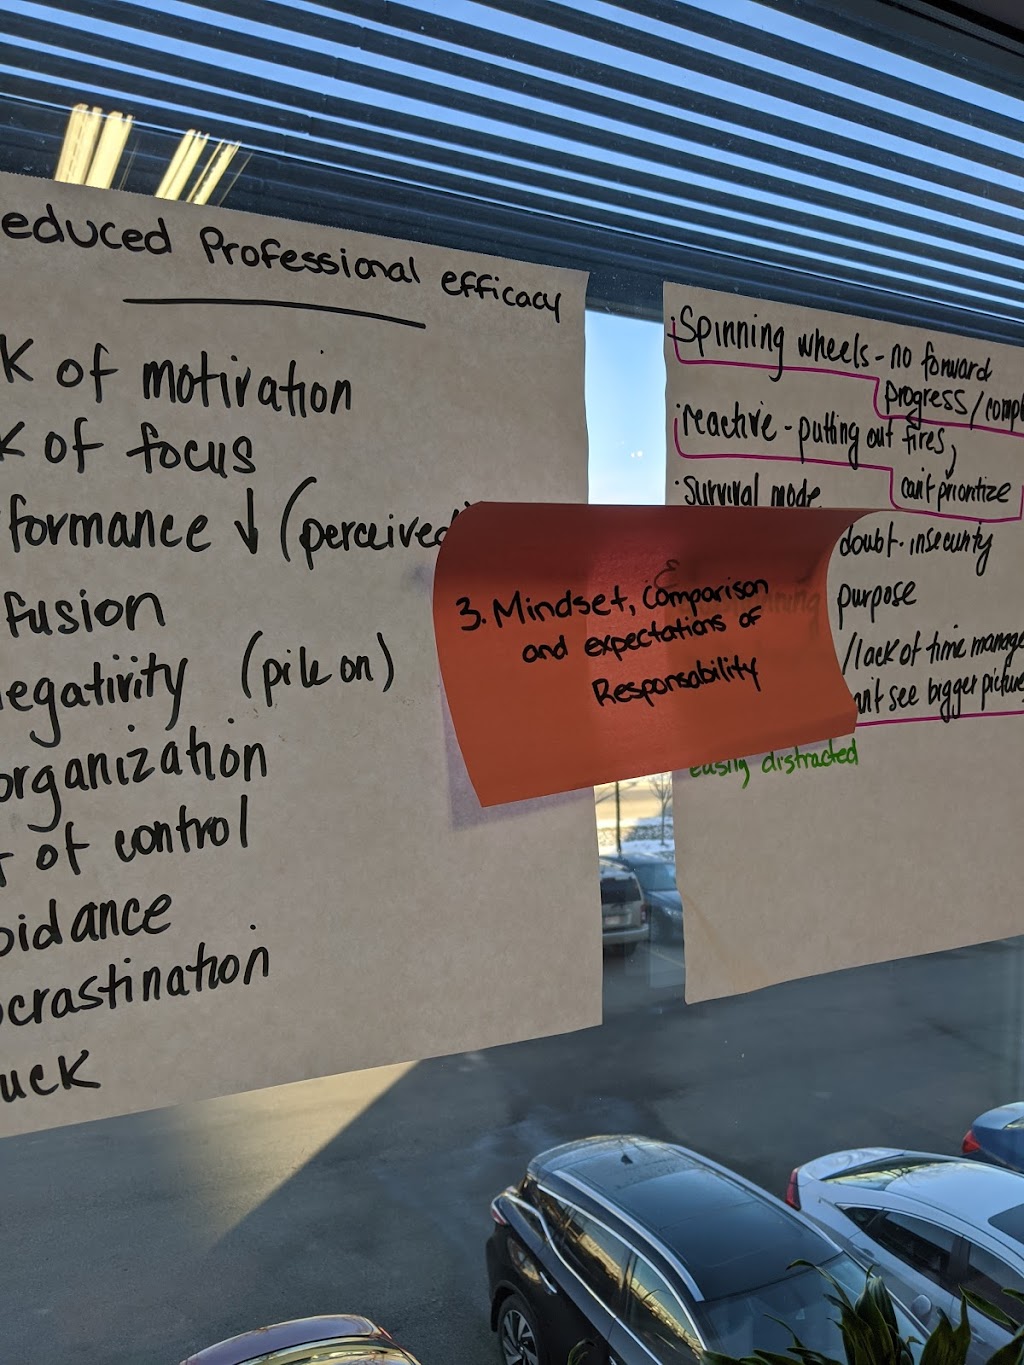 educed Professional efficacy
k of motivation
k of focus
formance ↓ (perceived
fusion
negativity (pile on)
organization
t of control
oidance
ocrastination
uck
3. Mindset, Comparison
and expectations of
Responsability
· Spinning wheels - no forward
progress/comp
· reactive - putting out fires,
can't prioritize
· Survival mode
doubt - insecurity
purpose
/lack of time manage
an't see bigger picture
easily distracted